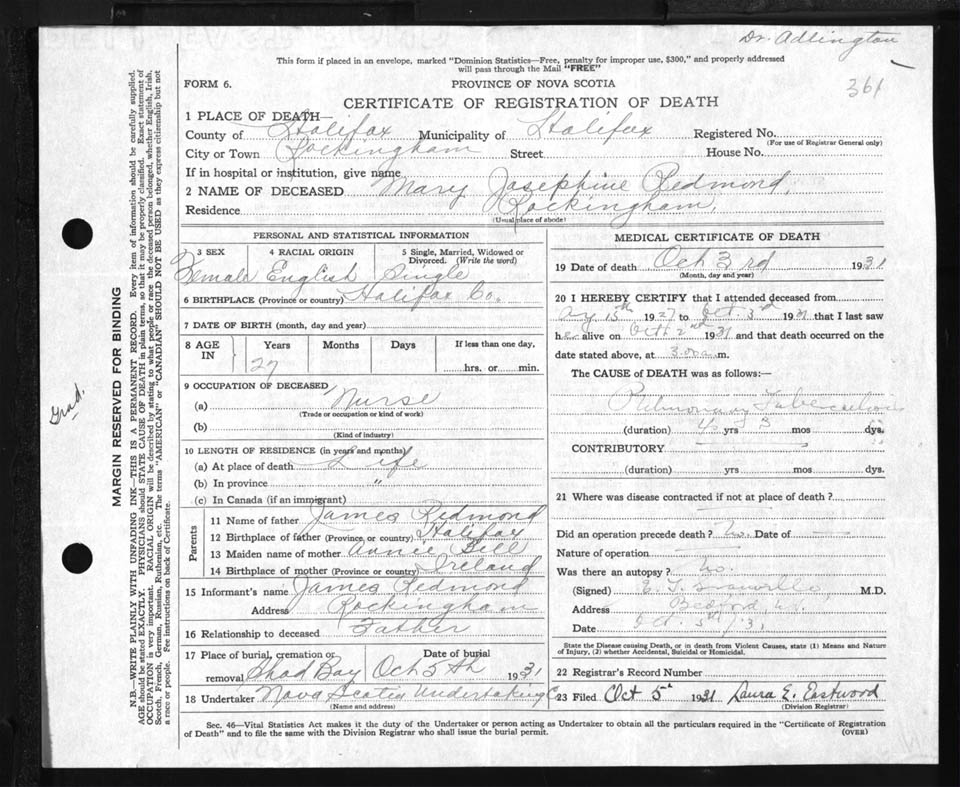 Dr. Adlington
This form if placed in an envelope, marked "Dominion Statistics—Free, penalty for improper use, $300," and properly addressed
will pass through the Mail "FREE"
FORM 6.
PROVINCE OF NOVA SCOTIA
361
CERTIFICATE OF REGISTRATION OF DEATH
1 PLACE OF DEATH—
County of Halifax Municipality of Halifax Registered No.
(For use of Registrar General only)
City or Town Rockingham Street House No.
If in hospital or institution, give name
2 NAME OF DECEASED Mary Josephine Redmond,
Residence Rockingham,
(Usual place of abode)
PERSONAL AND STATISTICAL INFORMATION
3 SEX 4 RACIAL ORIGIN 5 Single, Married, Widowed or
Divorced. (Write the word)
Female English Single
6 BIRTHPLACE (Province or country) Halifax Co.
7 DATE OF BIRTH (month, day and year)
8 AGE IN Years Months Days If less than one day,
27 hrs. or min.
9 OCCUPATION OF DECEASED
(a) Nurse
(Trade or occupation or kind of work)
(b)
(Kind of industry)
10 LENGTH OF RESIDENCE (in years and months)
(a) At place of death Life
(b) In province "
(c) In Canada (if an immigrant)
Parents
11 Name of father James Redmond
12 Birthplace of father (Province or country) Halifax
13 Maiden name of mother Annie Bell
14 Birthplace of mother (Province or country) Ireland
15 Informant's name James Redmond
Address Rockingham
16 Relationship to deceased Father
17 Place of burial, cremation or Date of burial
removal Shad Bay Oct 5th 1931
18 Undertaker Nova Scotia Undertaking C
(Name and address)
MEDICAL CERTIFICATE OF DEATH
19 Date of death Oct 3rd 1931
(Month, day and year)
20 I HEREBY CERTIFY that I attended deceased from
15th 1927 to Oct. 3rd 1931 that I last saw
her alive on Oct. 2nd 1931 and that death occurred on the
date stated above, at 3.00 a m.
The CAUSE of DEATH was as follows:—
Pulmonary Tuberculosis
(duration) yrs mos dys.
CONTRIBUTORY
(duration) yrs mos dys.
21 Where was disease contracted if not at place of death?
Did an operation precede death? No. Date of —
Nature of operation
Was there an autopsy? No.
(Signed) M.D.
Address Bedford, N.S.
Date Oct. 5th/31
State the Disease causing Death, or in death from Violent Causes, state (1) Means and Nature
of Injury, (2) whether Accidental, Suicidal or Homicidal.
22 Registrar's Record Number
23 Filed Oct 5th 1931 Laura E. Eastwood
(Division Registrar)
Sec. 46—Vital Statistics Act makes it the duty of the Undertaker or person acting as Undertaker to obtain all the particulars required in the "Certificate of Registration
of Death" and to file the same with the Division Registrar who shall issue the burial permit.
(OVER)
Grad.
MARGIN RESERVED FOR BINDING
N.B.—WRITE PLAINLY WITH UNFADING INK—THIS IS A PERMANENT RECORD. Every item of information should be carefully supplied.
AGE should be stated EXACTLY. PHYSICIANS should STATE CAUSE OF DEATH in plain terms, so that it may be properly classified. Exact statement of
OCCUPATION is very important. RACIAL ORIGIN will be described by stating to what people or race the deceased person belonged, whether English, Irish,
Scotch, French, German, Russian, Ruthenian, etc. The terms "AMERICAN" or "CANADIAN" SHOULD NOT BE USED as they express citizenship but not
a race or people. Fee instructions on back of Certificate.